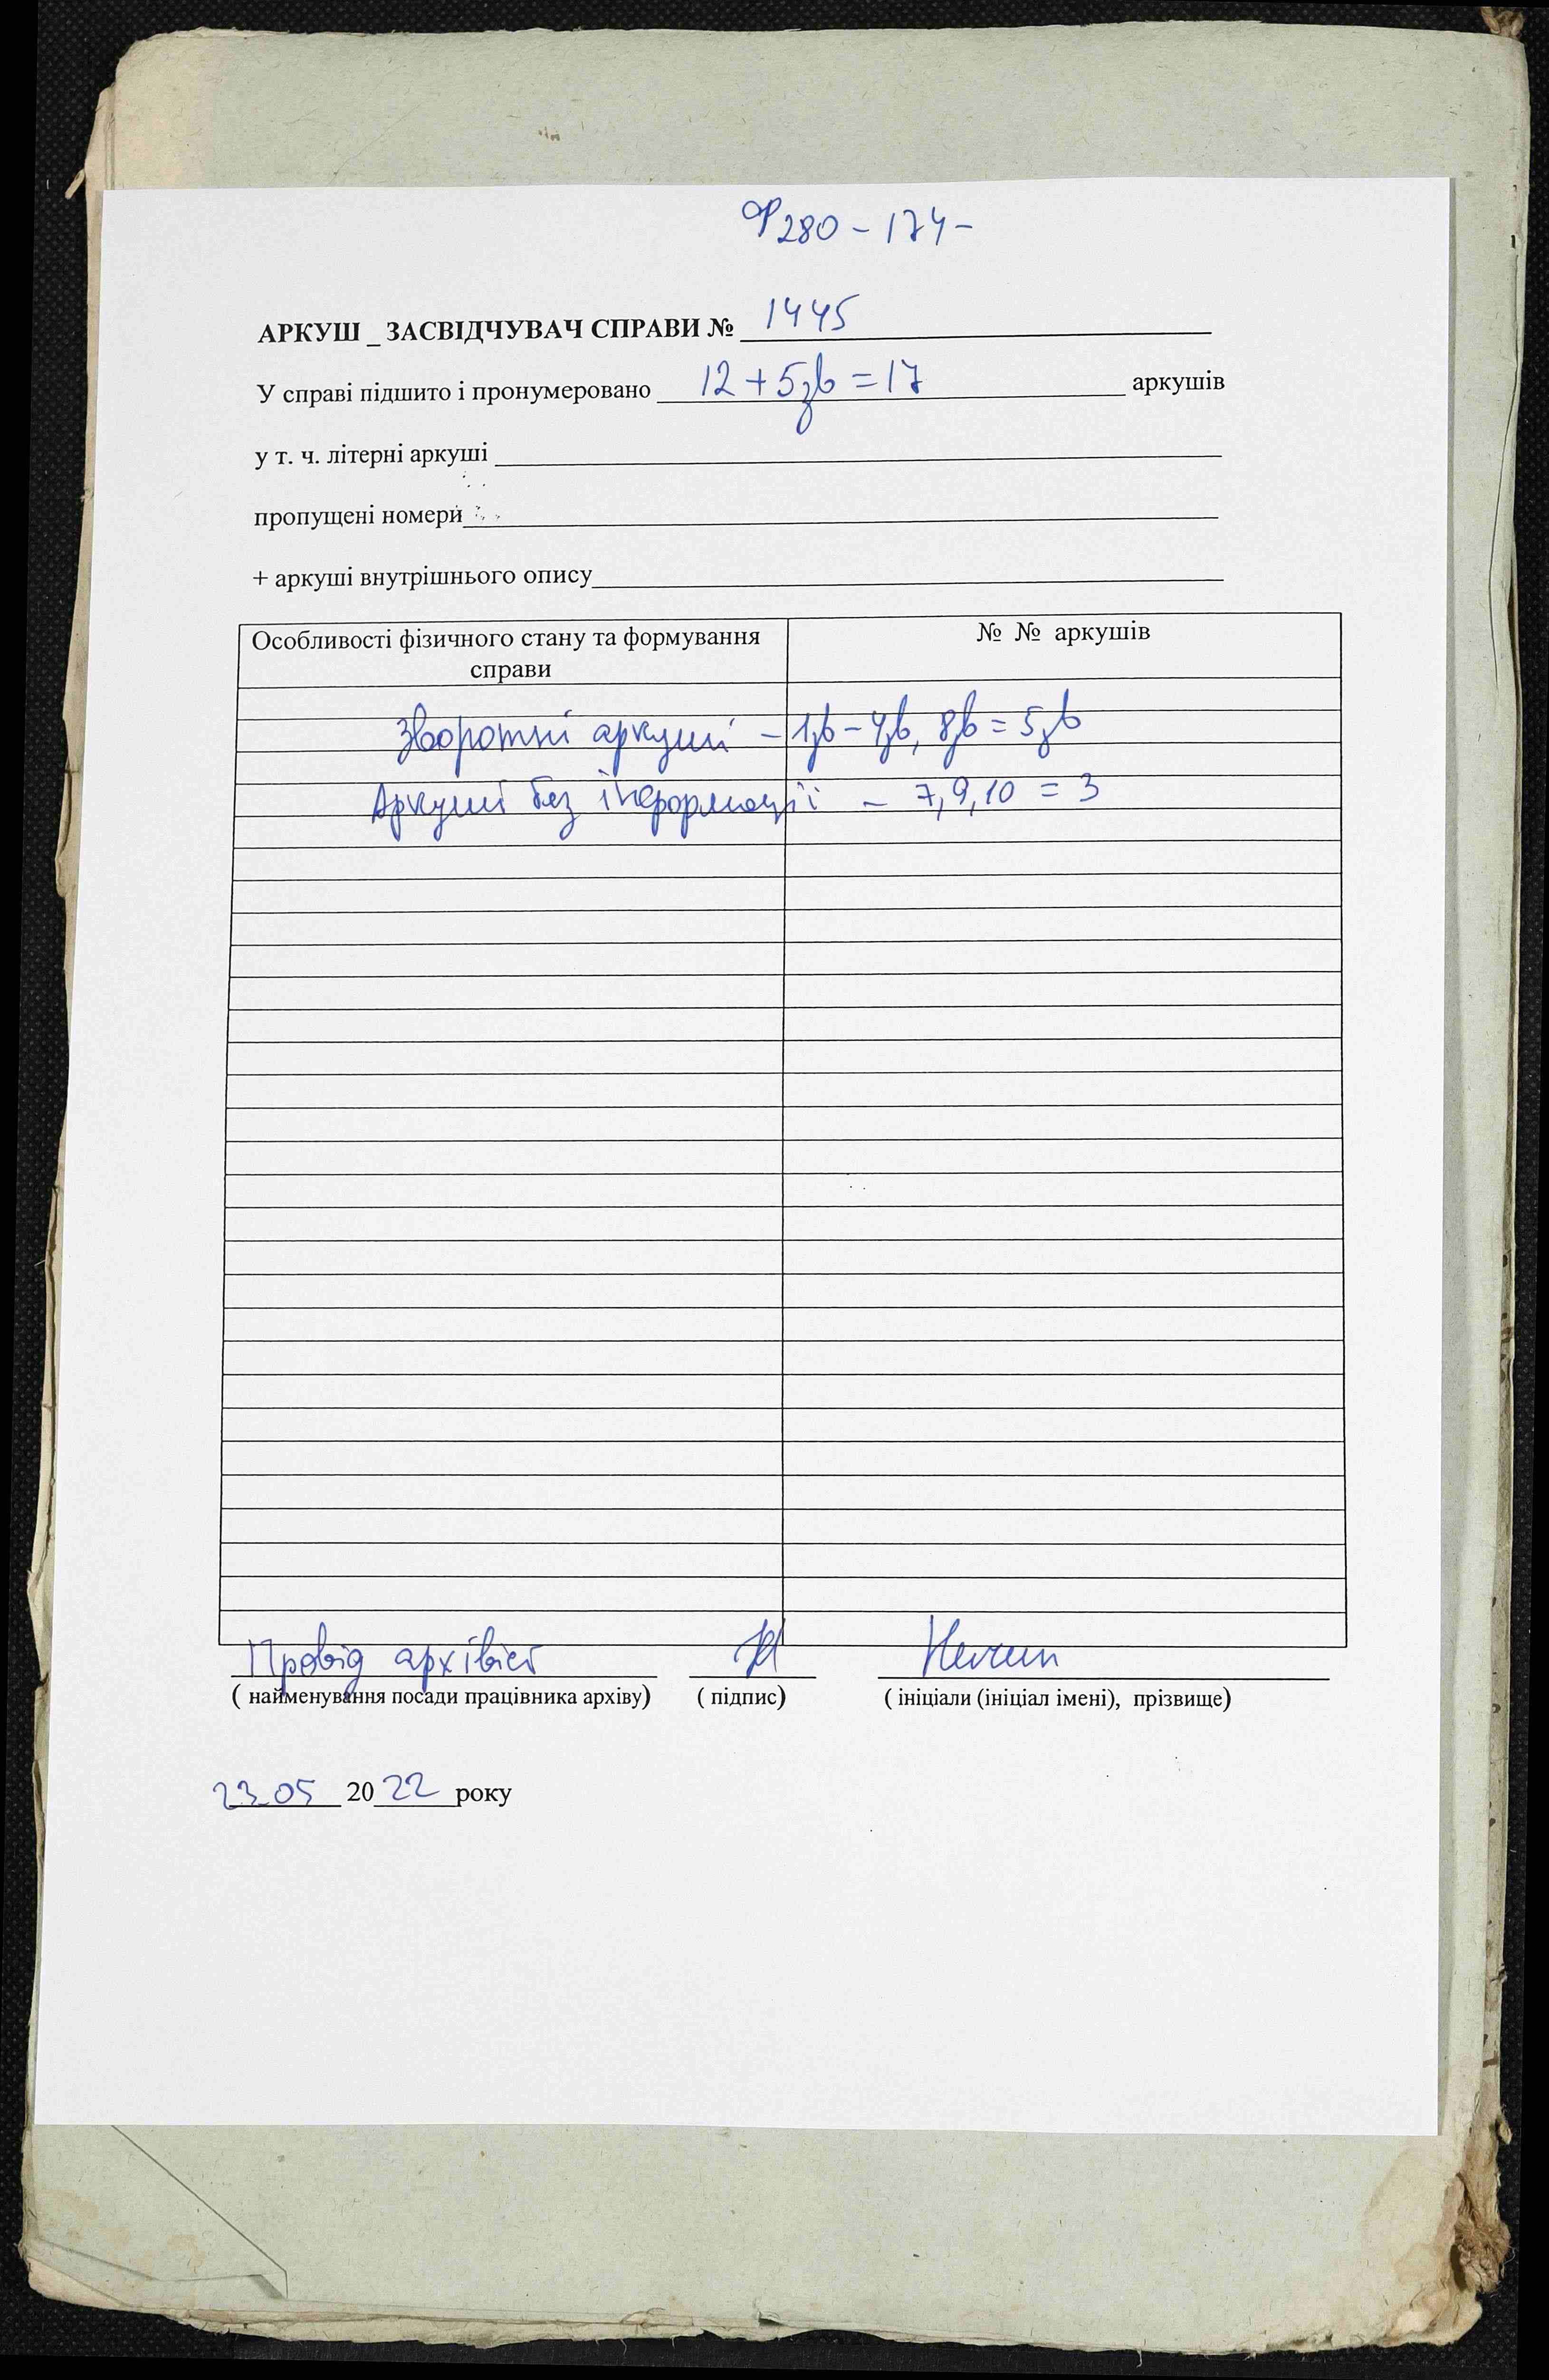 Ф280-174-
АРКУШ _ ЗАСВІДЧУВАЧ СПРАВИ № 1445
У справі підшито і пронумеровано 12+5зв=17 аркушів
у т. ч. літерні аркуші
пропущені номери
+ аркуші внутрішнього опису
Особливості фізичного стану та формування справи № № аркушів
Зворотні аркуші - 1зв-4зв, 8зв = 5зв
Аркуші без інформації - 7,9,10 = 3
Провід архівіст
( найменування посади працівника архіву) ( підпис) ( ініціали (ініціал імені), прізвище)
23.05 2022 року